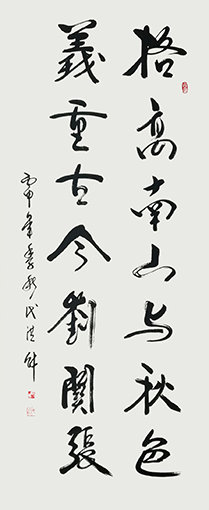 格高南山与秋色
義重古今劉關張
丙申年季秋